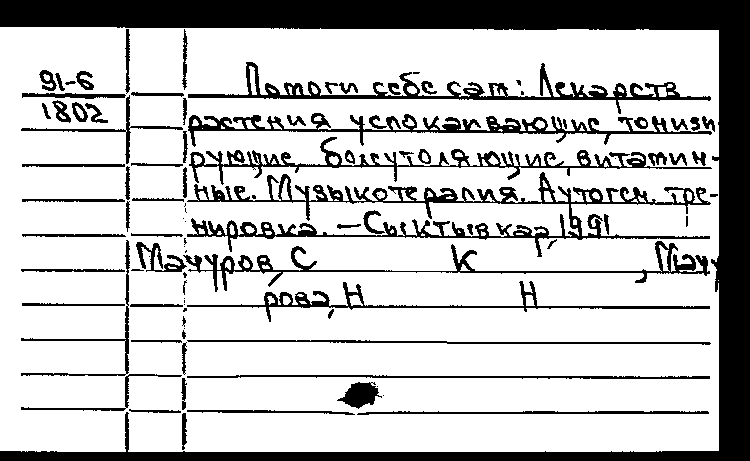 91-6
1802
Помоги себе сам: Лекарств
растения успокаивающие, тонизи
рующие, болеутоляющие, витамин-
ные. Музыкотерапия. Аутоген. тре-
нировка. - Сыктывкар, 1991.
Мачуров, С К , Мачу
рова, Н Н